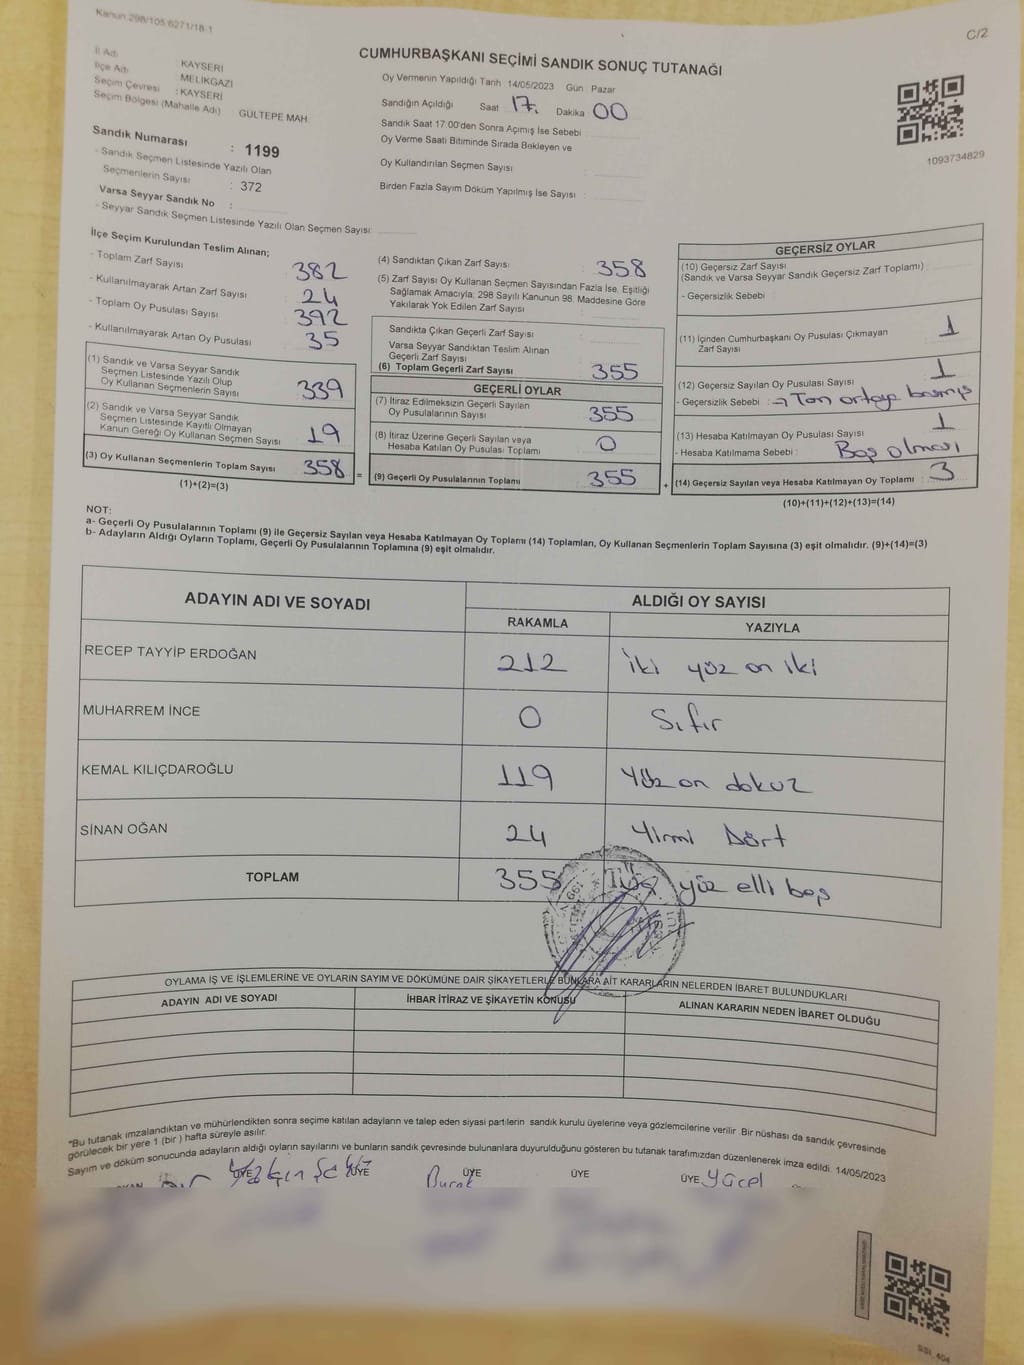 Kanun 298/105 6271/18-1
C/2
CUMHURBAŞKANI SEÇİMİ SANDIK SONUÇ TUTANAĞI
İl Adı : KAYSERİ
İlçe Adı : MELİKGAZİ
Seçim Çevresi : KAYSERİ
Seçim Bölgesi (Mahalle Adı) GÜLTEPE MAH.
Sandık Numarası : 1199
- Sandık Seçmen Listesinde Yazılı Olan
Seçmenlerin Sayısı : 372
Varsa Seyyar Sandık No :
- Seyyar Sandık Seçmen Listesinde Yazılı Olan Seçmen Sayısı:
Oy Vermenin Yapıldığı Tarih 14/05/2023 Gün Pazar
Sandığın Açıldığı Saat 17. Dakika 00
Sandık Saat 17:00'den Sonra Açımış İse Sebebi
Oy Verme Saati Bitiminde Sırada Bekleyen ve
Oy Kullandırılan Seçmen Sayısı
Birden Fazla Sayım Döküm Yapılmış İse Sayısı :
1093734829
İlçe Seçim Kurulundan Teslim Alınan;
- Toplam Zarf Sayısı : 382
- Kullanılmayarak Artan Zarf Sayısı 24
- Toplam Oy Pusulası Sayısı 392
- Kullanılmayarak Artan Oy Pusulası 35
(1) Sandık ve Varsa Seyyar Sandık
Seçmen Listesinde Yazılı Olup
Oy Kullanan Seçmenlerin Sayısı 339
(2) Sandık ve Varsa Seyyar Sandık
Seçmen Listesinde Kayıtlı Olmayan
Kanun Gereği Oy Kullanan Seçmen Sayısı 19
(3) Oy Kullanan Seçmenlerin Toplam Sayısı 358 =
(1)+(2)=(3)
(4) Sandıktan Çıkan Zarf Sayısı : 358
(5) Zarf Sayısı Oy Kullanan Seçmen Sayısından Fazla İse, Eşitliği
Sağlamak Amacıyla, 298 Sayılı Kanunun 98. Maddesine Göre
Yakılarak Yok Edilen Zarf Sayısı
Sandıkta Çıkan Geçerli Zarf Sayısı :
Varsa Seyyar Sandıktan Teslim Alınan
Geçerli Zarf Sayısı
(6) Toplam Geçerli Zarf Sayısı 355
GEÇERLİ OYLAR
(7) İtiraz Edilmeksizin Geçerli Sayılan
Oy Pusulalarının Sayısı 355
(8) İtiraz Üzerine Geçerli Sayılan veya
Hesaba Katılan Oy Pusulası Toplamı 0
(9) Geçerli Oy Pusulalarının Toplamı 355 +
GEÇERSİZ OYLAR
(10) Geçersiz Zarf Sayısı
(Sandık ve Varsa Seyyar Sandık Geçersiz Zarf Toplamı)
- Geçersizlik Sebebi
(11) İçinden Cumhurbaşkanı Oy Pusulası Çıkmayan
Zarf Sayısı 1
(12) Geçersiz Sayılan Oy Pusulası Sayısı 1
- Geçersizlik Sebebi : → Tam ortaya basmış
(13) Hesaba Katılmayan Oy Pusulası Sayısı 1
- Hesaba Katılmama Sebebi Boş olması
(14) Geçersiz Sayılan veya Hesaba Katılmayan Oy Toplamı 3
(10)+(11)+(12)+(13)=(14)
NOT:
a- Geçerli Oy Pusulalarının Toplamı (9) ile Geçersiz Sayılan veya Hesaba Katılmayan Oy Toplamı (14) Toplamları, Oy Kullanan Seçmenlerin Toplam Sayısına (3) eşit olmalıdır. (9)+(14)=(3)
b- Adayların Aldığı Oyların Toplamı, Geçerli Oy Pusulalarının Toplamına (9) eşit olmalıdır.
ADAYIN ADI VE SOYADI
ALDIĞI OY SAYISI
RAKAMLA YAZIYLA
RECEP TAYYİP ERDOĞAN 212 İki yüz on iki
MUHARREM İNCE 0 Sıfır
KEMAL KILIÇDAROĞLU 119 Yüz on dokuz
SİNAN OĞAN 24 Yirmi Dört
TOPLAM 355 Üç yüz elli beş
OYLAMA İŞ VE İŞLEMLERİNE VE OYLARIN SAYIM VE DÖKÜMÜNE DAİR ŞİKAYETLERLE BUNLARA AİT KARARLARIN NELERDEN İBARET BULUNDUKLARI
ADAYIN ADI VE SOYADI İHBAR İTİRAZ VE ŞİKAYETİN KONUSU ALINAN KARARIN NEDEN İBARET OLDUĞU
"Bu tutanak imzalandıktan ve mühürlendikten sonra seçime katılan adayların ve talep eden siyasi partilerin sandık kurulu üyelerine veya gözlemcilerine verilir. Bir nüshası da sandık çevresinde
görülecek bir yere 1 (bir) hafta süreyle asılır.
Sayım ve döküm sonucunda adayların aldığı oyların sayılarını ve bunların sandık çevresinde bulunanlara duyurulduğunu gösteren bu tutanak tarafımızdan düzenlenerek imza edildi. 14/05/2023
ÜYE ÜYE ÜYE ÜYE ÜYE Yücel
Burak